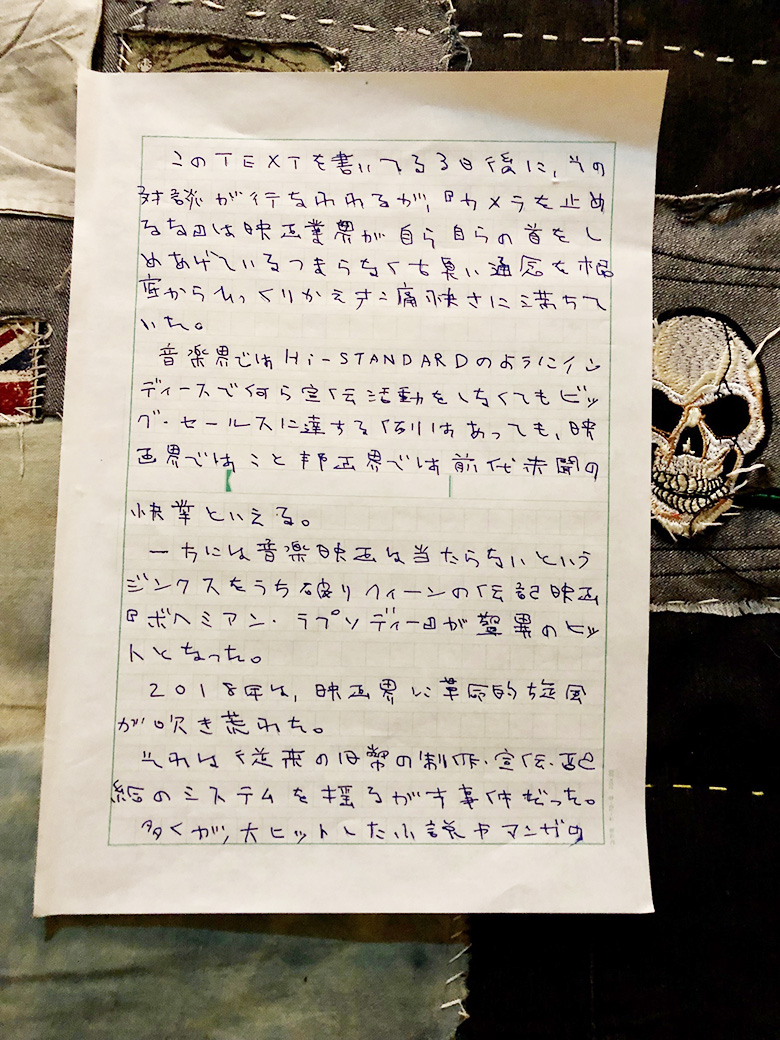 このTEXTを書いてる3日後に、その
対談が行なわれるが、『カメラを止め
るな』は映画業界が自ら自らの首をし
めあげているつまらなくて古臭い通念を根
底からひっくりかえす痛快さに満ちて
いた。
音楽界ではHi-STANDARDのようにイン
ディースで何ら宣伝活動をしなくてもビッ
グ・セールスに達する例はあっても、映
画界ではこと邦画界では前代未聞の
快挙といえる。
一方には音楽映画は当たらないという
ジンクスをうち破りクィーンの伝記映画
『ボヘミアン・ラプソディー』が驚異のヒッ
トとなった。
2018年は、映画界に革命的旋風
が吹き荒れた。
それは従来の旧弊の制作・宣伝・配
給のシステムを揺るがす事件だった。
多くが、大ヒットした小説やマンガの